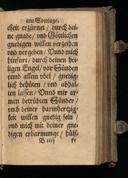 am Sontage.
zeit erzürnet / durch dei-
ne gnade / und Göttlichen
gnedigen willen verzeihen
und vergeben / Unnd mich
hinfurt / durch deinen hei-
ligen Engel / vor Sünden
unnd allen ubel / gnedig-
lich behüten / und
lassen / Unnd mir ar-
men betrübten Sünder /
nach deiner barmhertzig-
keit willen gnedig sein /
und mich mit deiner gne-
digen erbarmung /
B iiij